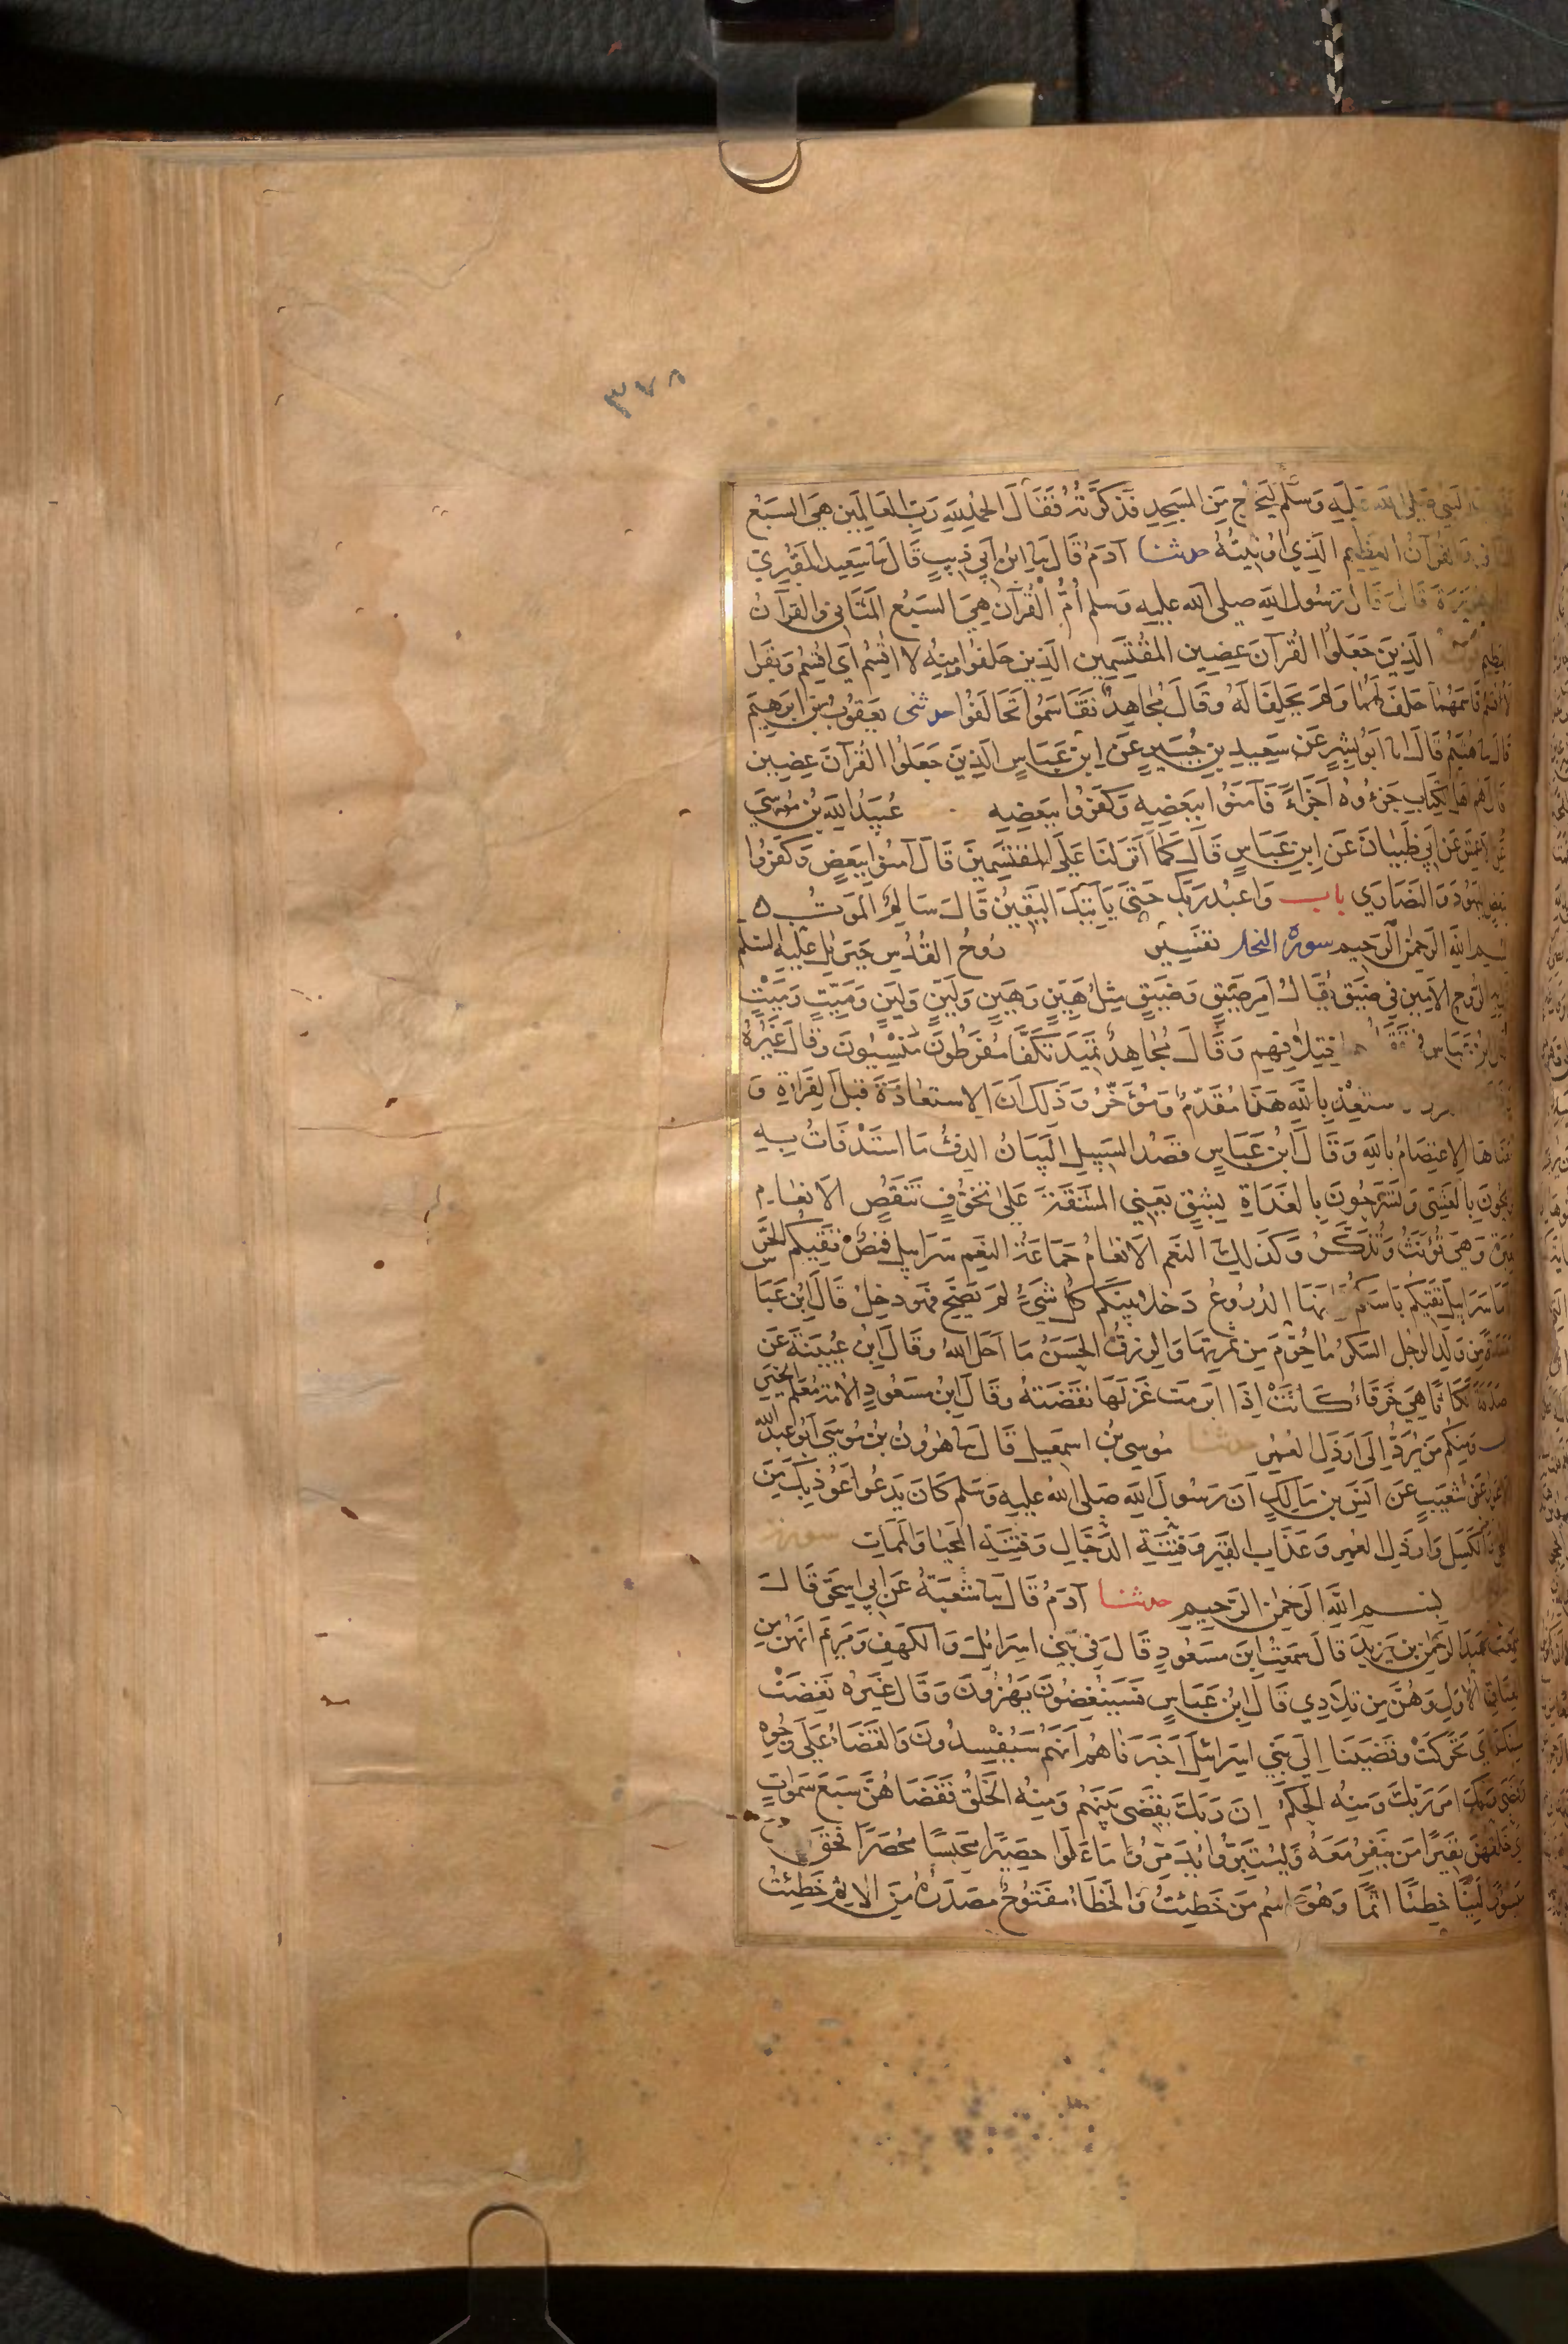 ٣٧٨
النبي صلى الله عليه وسلم ليخرج من المسجد فذكرته فقال الحمد لله رب العالمين هي السبع
والقرآن العظيم الذي اوتيته حدثنا آدم قال نا ابن ابي ذيب قال نا سعيد المقبري
هريرة قال قال رسول الله صلى الله عليه وسلم أم القرآن هي السبع المثاني والقرآن
العظيم قوله الذين جعلوا القرآن عضين المقتسمين الذين حلفوا ومنه لا اقسم أي اقسم وتقرأ
لأقسم قاسمهما حلف لهما ولم يحلفا له وقال مجاهد تقاسموا تحالفوا حدثني يعقوب بن ابرهيم
قال نا هشيم قال انا ابو بشر عن سعيد بن جبير عن ابن عباس الذين جعلوا القرآن عضين
قال هم اهل الكتاب جزءوه اجزاء فآمنوا ببعضه وكفروا ببعضه عبيد الله بن موسى
عن الاعمش عن ابي ظبيان عن ابن عباس قال كما انزلنا على المقتسمين قال آمنوا ببعض وكفروا
ببعض اليهود والنصارى باب واعبد ربك حتى يأتيك اليقين قال سالم الموت ه
بسم الله الرحمن الرحيم سورة النحل تفسير روح القدس جبريل عليه السلم
الروح الامين في ضيق يقال امر ضيق وضيق مثل هين وهين ولين ولين وميت وميت
قال ابن عباس في تقلبهم اختلافهم وقال مجاهد تميد تكفأ مفرطون منسيون وقال غيره
فاستعذ بالله هذا مقدم ومؤخر وذلك ان الاستعاذة قبل القراءة و
معناها الاعتصام بالله وقال ابن عباس قصد السبيل البيان الدفء ما استدفات به
تريحون بالعشي وتسرحون بالغداة بشق يعني المشقة على تخوف تنقص الانعام
لعبرة وهي تؤنث وتذكر وكذلك النعم الانعام جماعة النعم سرابيل قمص تقيكم الحر
واما سرابيل تقيكم باسكم فانها الدروع دخلا بينكم كل شيء لم يصح فهو دخل قال ابن عبا
حفدة من ولد الرجل السكر ما حرم من ثمرتها والرزق الحسن ما احل الله وقال ابن عيينة عن
صدقة انكاثا هي خرقاء كانت اذا ابرمت غزلها نقضته وقال ابن مسعود الامة معلم الخير
ومنكم من يرد الى ارذل العمر حدثنا موسى بن اسمعيل قال نا هرون بن موسى ابو عبد الله
الاعور عن شعيب عن انس بن مالك ان رسول الله صلى الله عليه وسلم كان يدعوا اعوذ بك من
البخل والكسل وارذل العمر وعذاب القبر وفتنة الدجال وفتنة المحيا والممات سورة
بسم الله الرحمن الرحيم حدثنا آدم قال نا شعبة عن ابي اسحق قال
سمعت عبد الرحمن بن يزيد قال سمعت ابن مسعود قال في بني اسرائل والكهف ومريم انهن من
العتاق الاول وهن من تلادي قال ابن عباس فسينغضون يهزون وقال غيره نغضت
سنك اي تحركت وقضينا الى بني اسرائل اخبرناهم انهم سيفسدون والقضاء على وجوه
وقضى ربك امر ربك ومنه الحكم ان ربك يقضي بينهم ومنه الخلق فقضاهن سبع سموات
خلقهن نفيرا من ينفر معه وليتبروا يدمروا ما علوا حصيرا محبسا محصرا فحق
ميسورا لينا خطئا اثما وهو اسم من خطئت والخطأ مفتوح مصدره من الاثم خطئت